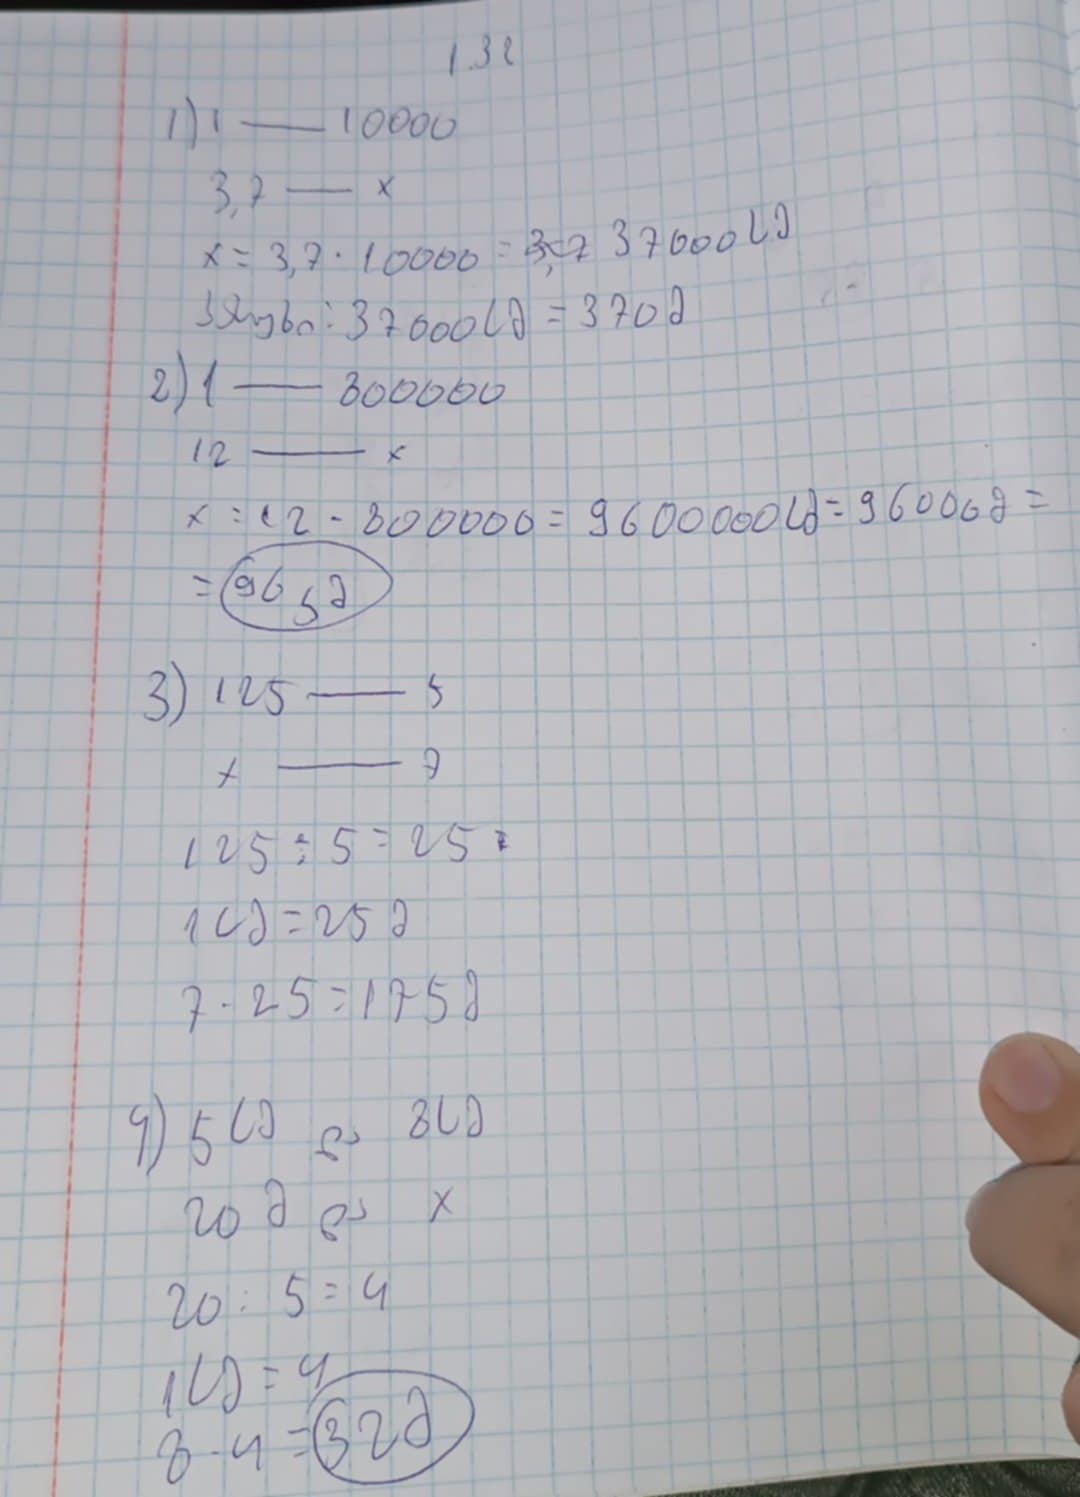 132
1) 1 — 10000
3,7 — x
x = 3,7 · 10000 = 37000 სმ
პასუხი: 37000 სმ = 370 მ
2) 1 — 800000
12 — x
x = 12 · 800000 = 9600000 სმ = 96000 მ =
= 96 კმ
3) 125 — 5
x — 7
125 : 5 = 25
1 სმ = 25 მ
7 · 25 = 175 მ
4) 5 სმ და 8 სმ
20 მ და x
20 : 5 = 4
1 სმ = 4
8 · 4 = 32 მ